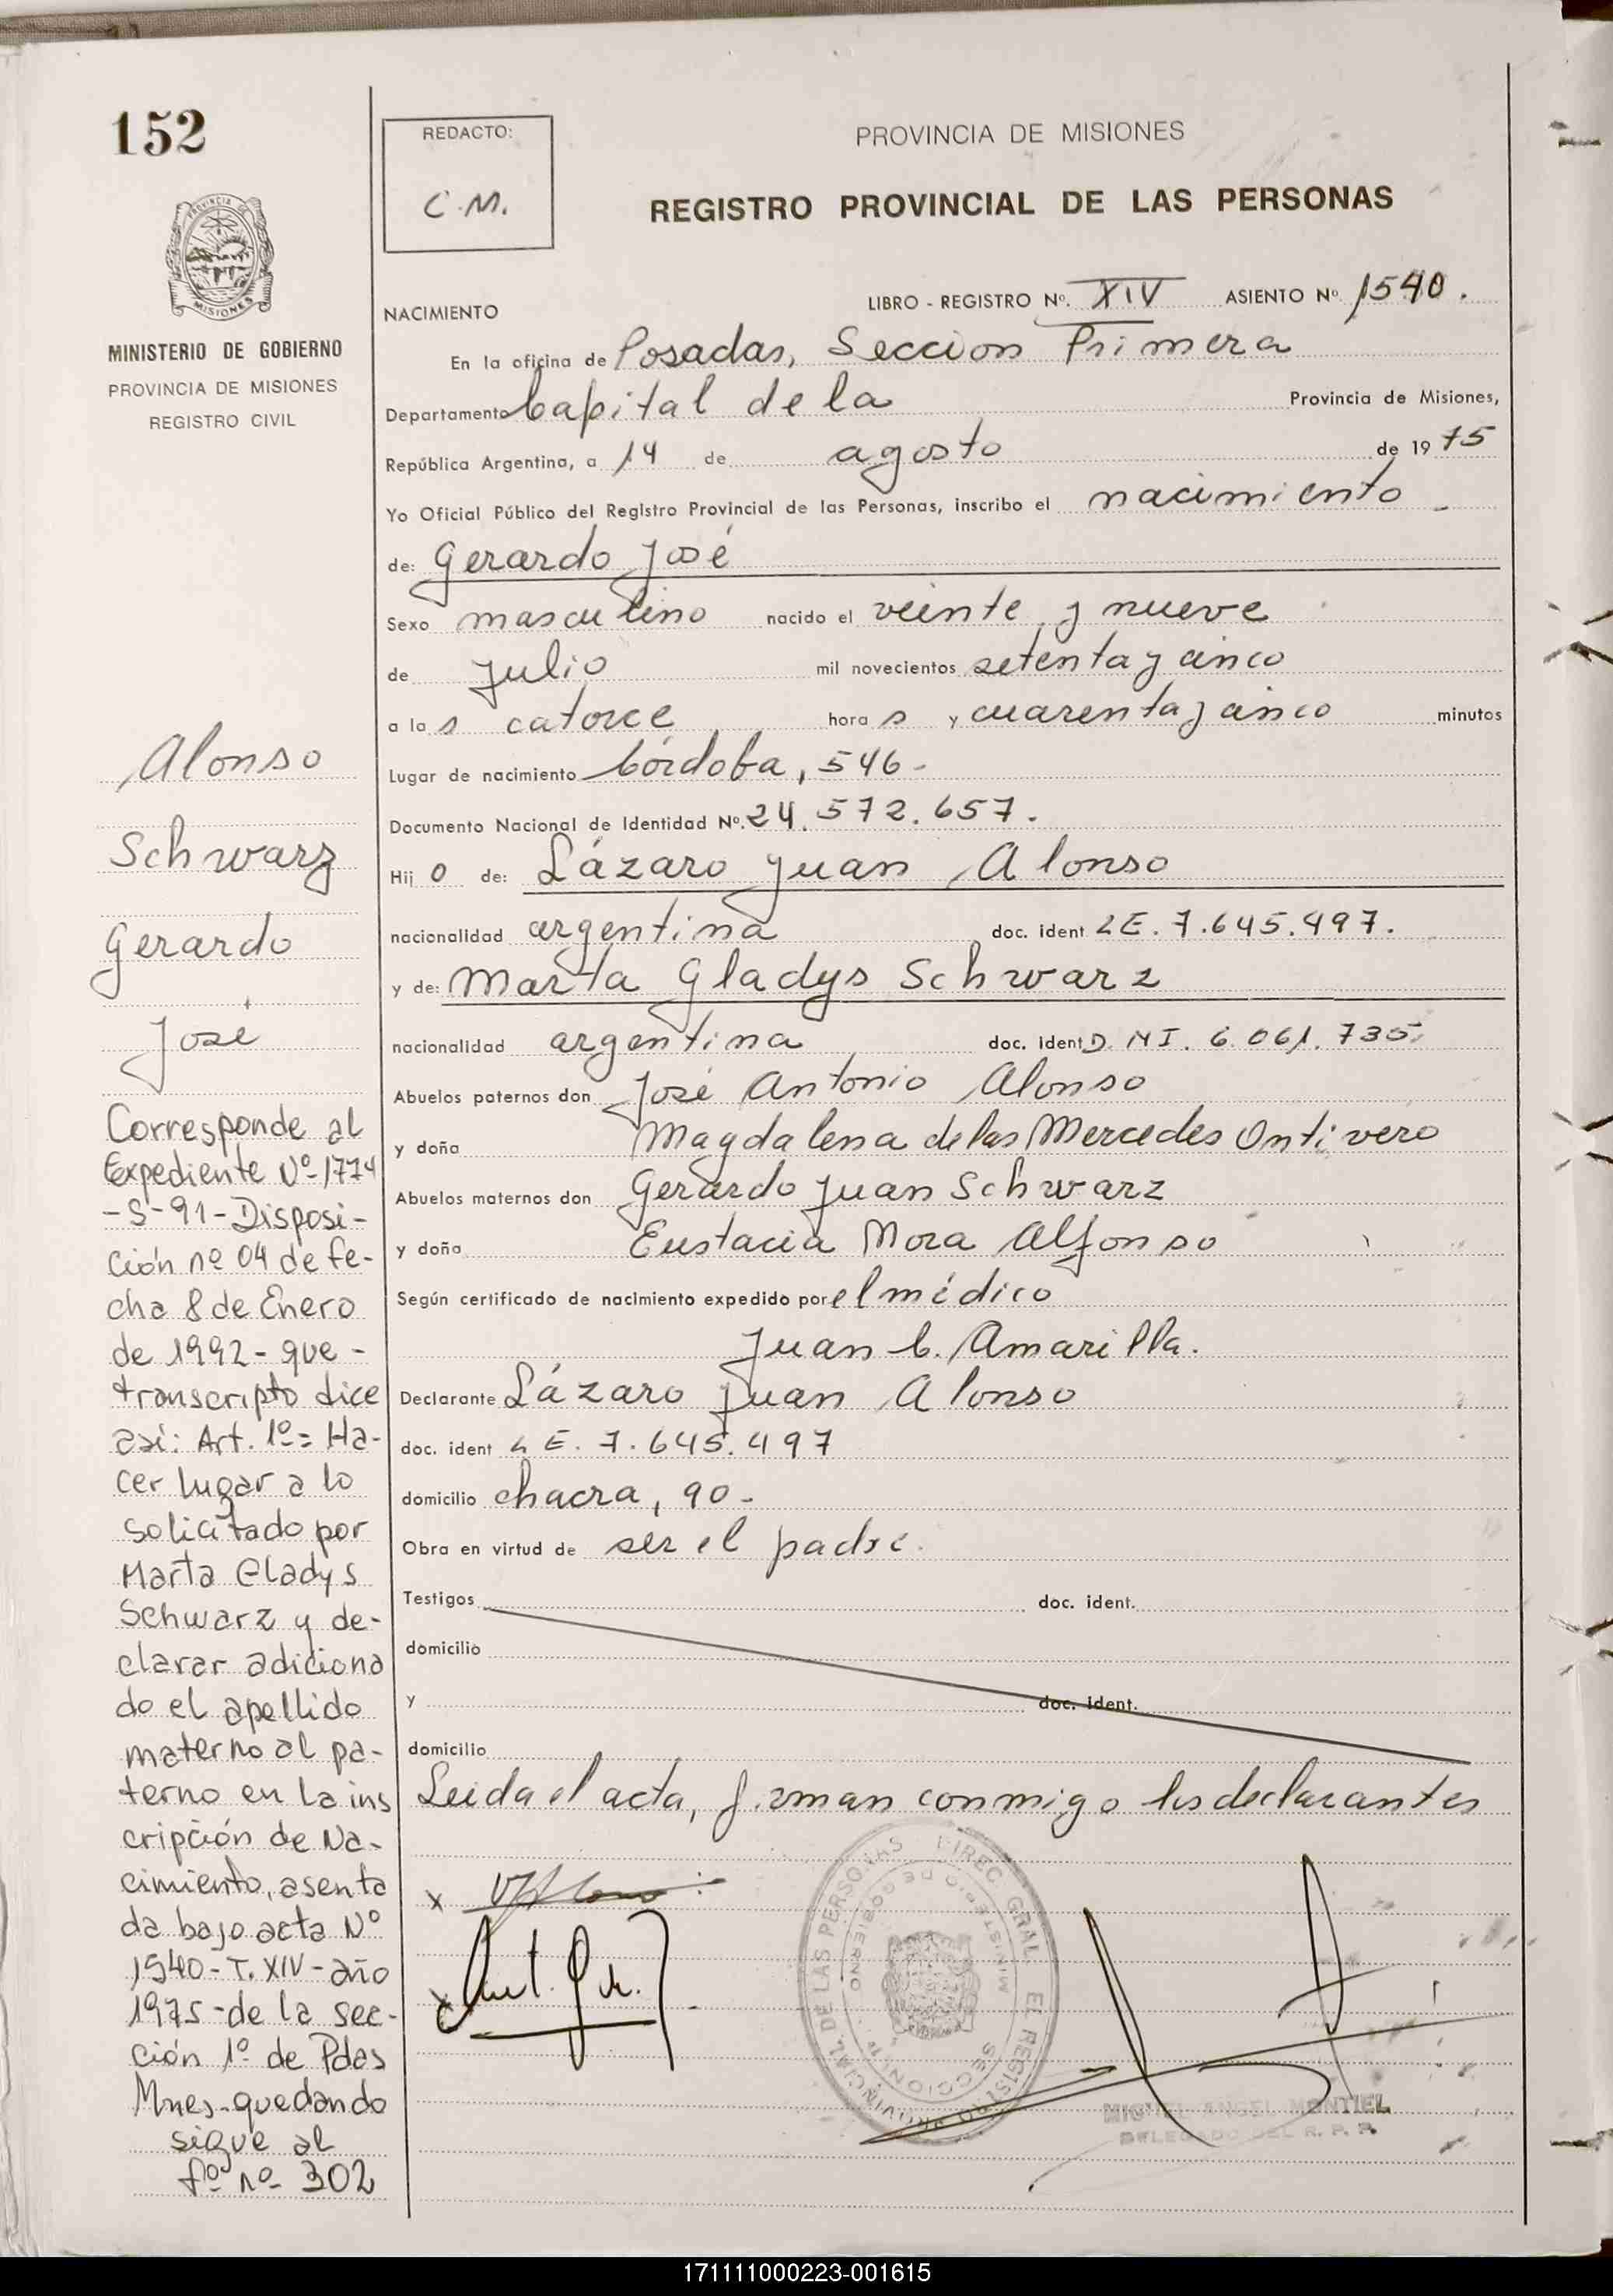 152
REDACTO:
C.M.
PROVINCIA DE MISIONES
REGISTRO PROVINCIAL DE LAS PERSONAS
MISIONES
MINISTERIO DE GOBIERNO
PROVINCIA DE MISIONES
REGISTRO CIVIL
NACIMIENTO
LIBRO - REGISTRO Nº. XIV ASIENTO Nº 1540.
En la oficina de Posadas, Seccion Primera
Departamento Capital de la Provincia de Misiones,
República Argentina, a 14 de agosto de 1975
Yo Oficial Público del Registro Provincial de las Personas, inscribo el nacimiento
de: Gerardo José
Sexo masculino nacido el veinte y nueve
de Julio mil novecientos setenta y cinco
a las catorce horas y cuarenta y cinco minutos
Lugar de nacimiento Córdoba, 546-
Documento Nacional de Identidad Nº. 24.572.657.
Hijo de: Lázaro Juan Alonso
nacionalidad argentina doc. ident LE. 7.645.497.
y de: Marta Gladys Schwarz
nacionalidad argentina doc. ident D.NI. 6.061.735.
Abuelos paternos don José Antonio Alonso
y doña Magdalena de las Mercedes Ontivero
Abuelos maternos don Gerardo Juan Schwarz
y doña Eustacia Mora Alfonso
Según certificado de nacimiento expedido por el médico
Juan C. Amarilla.
Declarante Lázaro Juan Alonso
doc. ident LE. 7.645.497
domicilio chacra, 90-
Obra en virtud de ser el padre.
Testigos doc. ident.
domicilio
y doc. ident.
domicilio
Leida el acta, firman conmigo los declarantes
x
x
DIREC. GRAL. EL REGISTRO PROVINCIAL DE LAS PERSONAS
MINISTERIO DE GOBIERNO
SECCION 1ª
MIGUEL ANGEL MONTIEL
DELEGADO DEL R. P. P.
Alonso
Schwarz
Gerardo
José
Corresponde al
Expediente Nº-1774
-S-91-Disposi-
ción nº 04 de fe-
cha 8 de Enero
de 1992-que-
transcripto dice
así: Art. 1º= Ha-
cer lugar a lo
solicitado por
Marta Gladys
Schwarz y de-
clarar adiciona
do el apellido
materno al pa-
terno en la ins
cripción de Na-
cimiento, asenta
da bajo acta Nº
1540-T. XIV-año
1975-de la sec-
ción 1º de Pdas
Mnes-quedando
sigue al
fº nº 302
171111000223-001615